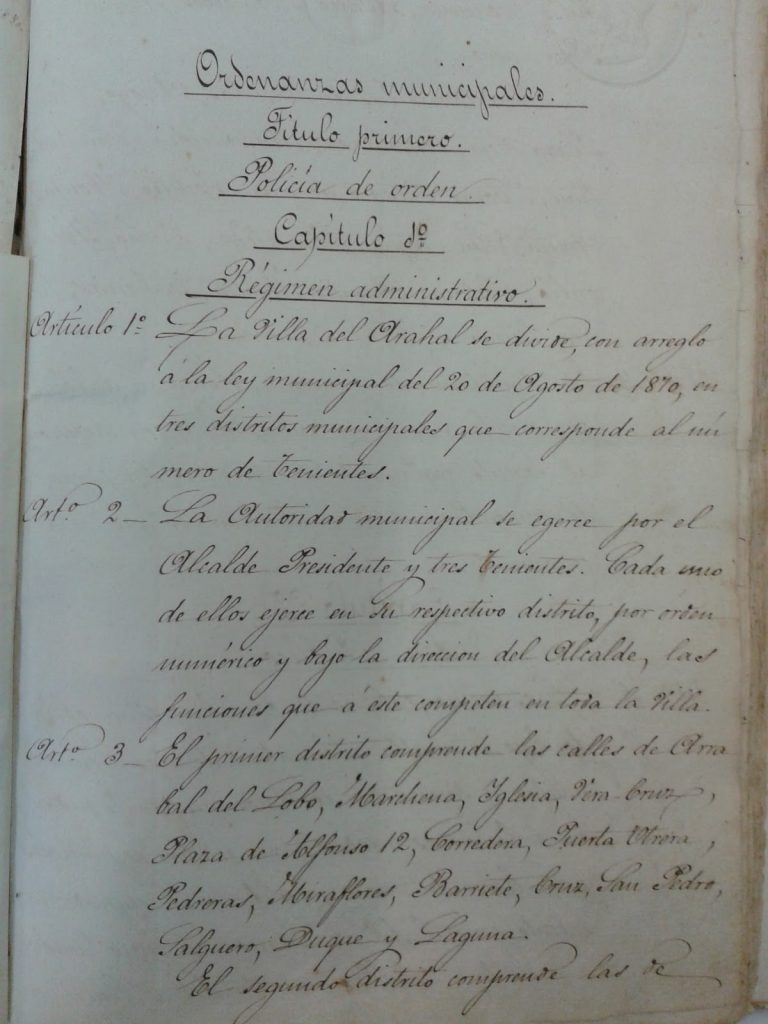 Ordenanzas municipales.
Título primero.
Policía de orden.
Capítulo 1º
Régimen administrativo.
Artículo 1º La Villa del Arahal se divide, con arreglo
á la ley municipal del 20 de Agosto de 1870, en
tres distritos municipales que corresponde al nú
mero de Tenientes.
Artº 2 — La Autoridad municipal se egerce por el
Alcalde Presidente y tres Tenientes. Cada uno
de ellos ejerce en su respectivo distrito, por orden
numérico y bajo la direccion del Alcalde, las
funciones que á este competen en toda la Villa.
Artº 3 — El primer distrito comprende las calles de Arra
bal del Lobo, Marchena, Iglesia, Vera-Cruz,
Plaza de Alfonso 12, Corredera, Puerta Utrera,
Pedreras, Miraflores, Barriete, Cruz, San Pedro,
Salguero, Duque y Laguna.
El segundo distrito comprende las de